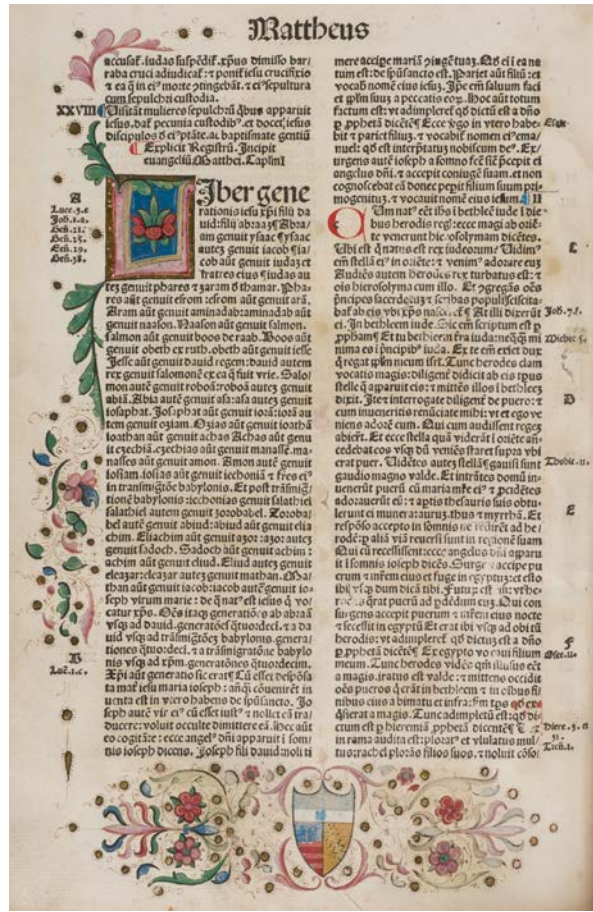 Mattheus
accusat̄. iudas suspēdit̄. xp̄us dimisso bar/
raba cruci adiudicat̄: ⁊ ponit̄ iesu crucifixio
⁊ ea q̄ in ei⁹ morte ꝯtingebāt̄: ⁊ ei⁹ sepultura
cum sepulchri custodia.
XXVIII Uisitāt mulieres sepulcrū q̄bus apparuit
iesus. dat̄ pecunia custodib⁹. et docet iesus
discipulos d̄ ei⁹ ptāte. ac baptismate gentiū
¶ Explicit Registrū. Incipit
euangeliū Matthei. Caplm I
A
Luce .3. e
Joh. 1. a.
Geñ. 21.
Geñ. 25.
Geñ. 29.
Geñ. 38.
Iber gene
rationis iesu xp̄i filij da
uid: filij abraaʒ ¶ Abra/
am genuit ysaac ¶ ysaac
auteʒ genuit iacob ¶ ia/
cob aūt genuit iudaʒ et
fratres eius ¶ iudas au
teʒ genuit phares ⁊ zaram d̄ thamar. Pha/
res aūt genuit esrom: esrom aūt genuit arā.
Aram aūt genuit aminadab: aminadab aūt
genuit naason. Naason aūt genuit salmon.
salmon aūt genuit boos de raab. Boos aūt
genuit obeth ex ruth. obeth aūt genuit iesse
Jesse aūt genuit dauid regem: dauid autem
rex genuit salomonē ex ea q̄ fuit vrie. Salo/
mon autē genuit roboā: roboā auteʒ genuit
abiā. Abia autē genuit asa: asa auteʒ genuit
iosaphat. Josaphat aūt genuit iorā: iorā au
tem genuit oziam. Ozias aūt genuit ioathā
ioathan aūt genuit achas Achas aūt genu
it ezechiā. ezechias aūt genuit manassē. ma/
nasses aūt genuit amon. Amon autē genuit
iosiam. iosias aūt genuit iechoniā ⁊ fr̄es ei⁹
in transmigrōe babylonis. Et post trāsmig/
tionē babylonis: iechonias genuit salathiel
salathiel autem genuit zorobabel. Zoroba/
bel autē genuit abiud: abiud aūt genuit elia
chim. Eliachim aūt genuit azor: azor auteʒ
genuit sadoch. Sadoch aūt genuit achim:
achim aūt genuit eliud. Eliud auteʒ genuit
eleazar: eleazar auteʒ genuit mathan. Ma/
than aūt genuit iacob: iacob autē genuit io/
seph virum marie: de q̄ nat⁹ est iesus q̄ vo/
catur xp̄us. Oēs itaqʒ generatiōes ab abraā
vsqʒ ad dauid. generatiōes q̄tuordeci. ⁊ a da
uid vsqʒ ad trāsmigtōeʒ babylonis. genera/
tiones q̄tuordeci. ⁊ a trāsmigratōne babylo
B
Luc. 1. c.
nis vsqʒ ad xp̄m. generatōnes q̄tuordecim.
Xp̄i aūt generatio sic erat ¶ Cū esset despōsa
ta mat̄ iesu maria ioseph: anq̄ꝫ cōuenirēt in
uenta est in vtero habens de sp̄usancto. Jo
seph autē vir ei⁹ cū esset iust⁹ ⁊ nollet eā tra/
ducere: voluit occulte dimittere eā. Hec aūt
eo cogitāte: ecce angel⁹ dn̄i apparuit ī som/
nis ioseph dicens. Joseph fili dauid: noli ti
mere accipe mariā ꝯiugē tuaʒ. Qd̄ eī ī ea na
tum est: de sp̄usancto est. Pariet aūt filiū: et
vocab̄ nomē eius iesuʒ. Ip̄e em̄ saluum faci
et pl̄m suuʒ a peccatis eoꝝ. Hoc aūt totum
factum est: vt adimpleret̄ qd̄ dictū est a dn̄o
ꝑ ꝓphetā dicētē ¶ Ecce ꝟgo in vtero habe/
bit ⁊ pariet filiuʒ. ⁊ vocabit̄ nomen ei⁹ ema/
nuel: qd̄ est interp̄tatuʒ nobiscum de⁹. Ex/
urgens autē ioseph a somno fec̄ sic̄ p̄cepit ei
angelus dn̄i. ⁊ accepit coniugē suam. et non
cognoscebat eā donec pepit filium suum pri
mogenituʒ. ⁊ vocauit nomē eius iesum. II
Esaie
CUm nat⁹ eēt ih̄s ī bethleē iude ī die/
bus herodis reg⁹: ecce magi ab oriē/
te venerunt hierosolymam dicētes.
Ubi est q̄ natus est rex iudeorum: Uidim⁹
em̄ stellā ei⁹ in oriēte: ⁊ venim⁹ adorare euʒ
C
Audiēs autem herodes rex turbatus est: ⁊
oīs hierosolyma cum illo. Et ꝯgregās oēs
p̄ncipes sacerdotuʒ ⁊ scribas populi: sciscita/
bat̄ ab eis vbi xp̄us nasceret̄ ¶ At illi dixerūt
Joh. 7. f.
ei. In bethleem iude. Sic em̄ scriptum est ꝑ
ꝓpham ¶ Et tu bethleem tr̄a iuda: neq̄qʒ mi
Michee 5.
nima es ī p̄ncipib⁹ iuda. Ex te em̄ exiet dux
q̄ regat pl̄m meum isrl̄. Tunc herodes clam
vocatis magis: diligent̄ didicit ab eis tp̄us
stelle q̄ apparuit eis: ⁊ mittēs illos ī bethleeʒ
dixit. Ite ⁊ interrogate diligent̄ de puero: ⁊
D
cum inueneritis renūciate mihi: vt ⁊ ego ve
niens adorē eum. Qui cum audissent regeʒ
abierūt. Et ecce stella quā viderāt ī oriēte añ/
cedebat eos vsqʒ dū veniēs staret supra vbi
erat puer. Uidētes auteʒ stellā ¶ gauisi sunt
Thobie. 11.
gaudio magno valde. Et intrātes domū in
uenerūt puerū cū maria mr̄e ei⁹ ⁊ ꝓcidētes
adorauerūt eū: ⁊ aptis thesauris suis obtu/
lerūt ei munera: auruʒ. thus ⁊ myrrhā. Et
E
respōso accepto in somnis ne redirēt ad he/
rodē: ꝑ aliā viā reuersi sunt in regionē suam
Qui cū recessissent: ecce angelus dn̄i apparu
it ī somnis ioseph dicēs. Surge ⁊ accipe pu
erum ⁊ m̄rem eius et fuge in egyptuʒ: et esto
ibi vsqʒ dum dicā tibi. Futuꝝ est em̄ vt he/
rodes q̄rat puerū ad ꝑdēdum euʒ. Qui con
surgens accepit puerum ⁊ m̄rem eius nocte
⁊ secessit in egyptū Et erat ibi vsqʒ ad obitū
herodis: vt adimpleret̄ qd̄ dictuʒ est a dn̄o
F
ꝑ ꝓphetā dicētē ¶ Ex egypto vocaui filium
Osee. 11.
meum. Tunc herodes vidēs qm̄ illusus eēt
a magis. iratus est valde: ⁊ mittens occidit
oēs pueros q̄ erāt in bethleem ⁊ in oībus fi/
nibus eius a bimatu et infra: fm̄ tp̄s qd̄ ex/
q̄sierat a magis. Tunc adimpletū est: qd̄ di/
ctum est ꝑ hieremiā ꝓphetā dicentē
Hiere. 3. et
31.
in rama audita est: plorat⁹ et vlulatus mul/
tus: rachel plorās filios suos. ⁊ noluit cōso/